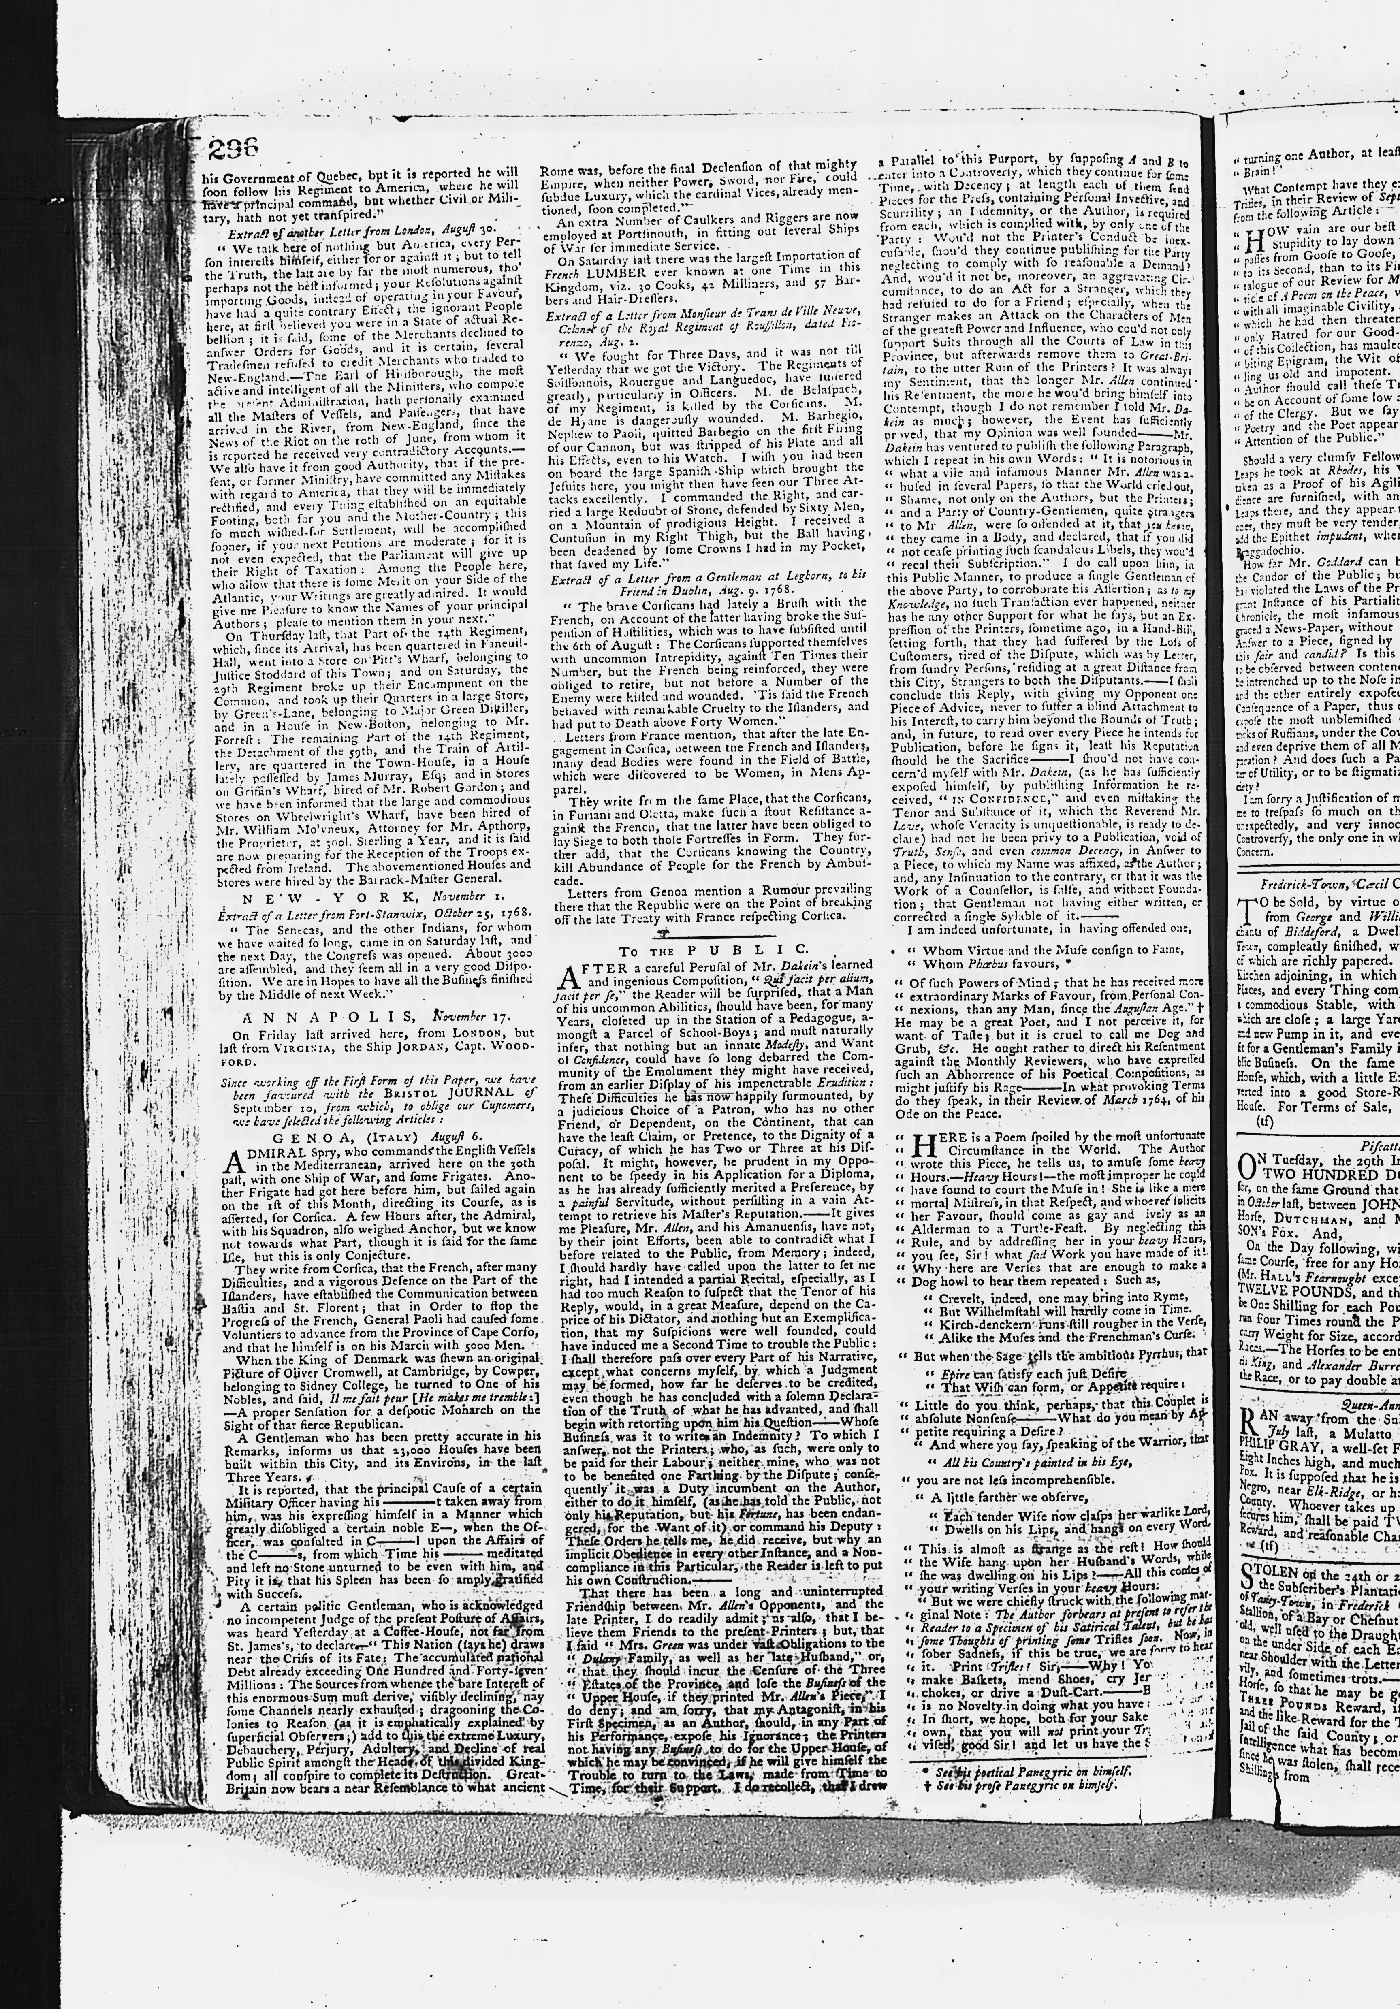 296
his Government of Quebec, but it is reported he will
soon follow his Regiment to America, where he will
have a principal command, but whether Civil or Mili-
tary, hath not yet transpired."
Extract of another Letter from London, August 30.
" We talk here of nothing but America, every Per-
son interests himself, either for or against it ; but to tell
the Truth, the last are by far the most numerous, tho'
perhaps not the best informed ; your Resolutions against
importing Goods, instead of operating in your Favour,
have had a quite contrary Effect ; the ignorant People
here, at first believed you were in a State of actual Re-
bellion ; it is said, some of the Merchants declined to
answer Orders for Goods, and it is certain, several
Tradesmen refused to credit Merchants who traded to
New-England.—The Earl of Hillsborough, the most
active and intelligent of all the Ministers, who compose
the present Administration, hath personally examined
all the Masters of Vessels, and Passengers, that have
arrived in the River, from New-England, since the
News of the Riot on the 10th of June, from whom it
is reported he received very contradictory Accounts.—
We also have it from good Authority, that if the pre-
sent, or former Ministry, have committed any Mistakes
with regard to America, that they will be immediately
rectified, and every Thing established on an equitable
Footing, both for you and the Mother-Country ; this
so much wished-for Settlement, will be accomplished
sooner, if your next Petitions are moderate ; for it is
not even expected, that the Parliament will give up
their Right of Taxation : Among the People here,
who allow that there is some Merit on your Side of the
Atlantic, your Writings are greatly admired. It would
give me Pleasure to know the Names of your principal
Authors ; please to mention them in your next."
On Thursday last, that Part of the 14th Regiment,
which, since its Arrival, has been quartered in Faneuil-
Hall, went into a Store on Pitt's Wharf, belonging to
Justice Stoddard of this Town ; and on Saturday, the
29th Regiment broke up their Encampment on the
Common, and took up their Quarters in a large Store,
by Green's-Lane, belonging to Major Green Distiller,
and in a House in New-Boston, belonging to Mr.
Forrest : The remaining Part of the 14th Regiment,
the Detachment of the 59th, and the Train of Artil-
lery, are quartered in the Town-House, in a House
lately possessed by James Murray, Esq; and in Stores
on Griffin's Wharf, hired of Mr. Robert Gordon ; and
we have been informed that the large and commodious
Stores on Wheelwright's Wharf, have been hired of
Mr. William Molyneux, Attorney for Mr. Apthorp,
the Proprietor, at 300l. Sterling a Year, and it is said
are now preparing for the Reception of the Troops ex-
pected from Ireland. The abovementioned Houses and
Stores were hired by the Barrack-Master General.
NEW-YORK, November 1.
Extract of a Letter from Fort-Stanwix, October 25, 1768.
" The Senecas, and the other Indians, for whom
we have waited so long, came in on Saturday last, and
the next Day, the Congress was opened. About 3000
are assembled, and they seem all in a very good Dispo-
sition. We are in Hopes to have all the Business finished
by the Middle of next Week."
ANNAPOLIS, November 17.
On Friday last arrived here, from LONDON, but
last from VIRGINIA, the Ship JORDAN, Capt. WOOD-
FORD.
Since working off the First Form of this Paper, we have
been favoured with the BRISTOL JOURNAL of
September 10, from which, to oblige our Customers,
we have selected the following Articles :
GENOA, (ITALY) August 6.
ADMIRAL Spry, who commands the English Vessels
in the Mediterranean, arrived here on the 30th
past, with one Ship of War, and some Frigates. Ano-
ther Frigate had got here before him, but sailed again
on the 1st of this Month, directing its Course, as is
asserted, for Corsica. A few Hours after, the Admiral,
with his Squadron, also weighed Anchor, but we know
not towards what Part, though it is said for the same
Isle, but this is only Conjecture.
They write from Corsica, that the French, after many
Difficulties, and a vigorous Defence on the Part of the
Islanders, have established the Communication between
Bastia and St. Florent ; that in Order to stop the
Progress of the French, General Paoli had caused some
Voluntiers to advance from the Province of Cape Corso,
and that he himself is on his March with 5000 Men.
When the King of Denmark was shewn an original
Picture of Oliver Cromwell, at Cambridge, by Cowper,
belonging to Sidney College, he turned to One of his
Nobles, and said, Il me fait peur [He makes me tremble:]
—A proper Sensation for a despotic Monarch on the
Sight of that fierce Republican.
A Gentleman who has been pretty accurate in his
Remarks, informs us that 23,000 Houses have been
built within this City, and its Environs, in the last
Three Years.
It is reported, that the principal Cause of a certain
Military Officer having his ———t taken away from
him, was his expressing himself in a Manner which
greatly disobliged a certain noble E—, when the Of-
ficer, was consulted in C———l upon the Affairs of
the C———s, from which Time his ——— meditated
and left no Stone unturned to be even with him, and
Pity it is, that his Spleen has been so amply gratified
with Success.
A certain politic Gentleman, who is acknowledged
no incompetent Judge of the present Posture of Affairs,
was heard Yesterday at a Coffee-House, not far from
St. James's, to declare—" This Nation (says he) draws
near the Crisis of its Fate : The accumulated national
Debt already exceeding One Hundred and Forty-seven
Millions : The Sources from whence the bare Interest of
this enormous Sum must derive, visibly declining, nay
some Channels nearly exhausted ; dragooning the Co-
lonies to Reason (as it is emphatically explained by
superficial Observers;) add to this the extreme Luxury,
Debauchery, Perjury, Adultery, and Decline of real
Public Spirit amongst the Heads of this divided King-
dom ; all conspire to complete its Destruction. Great-
Britain now bears a near Resemblance to what ancient
Rome was, before the final Declension of that mighty
Empire, when neither Power, Sword, nor Fire, could
subdue Luxury, which the cardinal Vices, already men-
tioned, soon completed."
An extra Number of Caulkers and Riggers are now
employed at Portsmouth, in fitting out several Ships
of War for immediate Service.
On Saturday last there was the largest Importation of
French LUMBER ever known at one Time in this
Kingdom, viz. 30 Cooks, 42 Milliners, and 57 Bar-
bers and Hair-Dressers.
Extract of a Letter from Monsieur de Trans de Ville Neuve,
Colonel of the Royal Regiment of Roussillon, dated Flo-
renzo, Aug. 2.
" We fought for Three Days, and it was not till
Yesterday that we got the Victory. The Regiments of
Soissonnois, Rouergue and Languedoc, have suffered
greatly, particularly in Officers. M. de Belaspach,
of my Regiment, is killed by the Corsicans. M.
de Hyane is dangerously wounded. M. Barbegio,
Nephew to Paoli, quitted Barbegio on the first Firing
of our Cannon, but was stripped of his Plate and all
his Effects, even to his Watch. I wish you had been
on board the large Spanish Ship which brought the
Jesuits here, you might then have seen our Three At-
tacks excellently. I commanded the Right, and car-
ried a large Redoubt of Stone, defended by Sixty Men,
on a Mountain of prodigious Height. I received a
Contusion in my Right Thigh, but the Ball having
been deadened by some Crowns I had in my Pocket,
that saved my Life."
Extract of a Letter from a Gentleman at Leghorn, to his
Friend in Dublin, Aug. 9. 1768.
" The brave Corsicans had lately a Brush with the
French, on Account of the latter having broke the Sus-
pension of Hostilities, which was to have subsisted until
the 6th of August : The Corsicans supported themselves
with uncommon Intrepidity, against Ten Times their
Number, but the French being reinforced, they were
obliged to retire, but not before a Number of the
Enemy were killed and wounded. 'Tis said the French
behaved with remarkable Cruelty to the Islanders, and
had put to Death above Forty Women."
Letters from France mention, that after the late En-
gagement in Corsica, between the French and Islanders,
many dead Bodies were found in the Field of Battle,
which were discovered to be Women, in Mens Ap-
parel.
They write from the same Place, that the Corsicans,
in Furiani and Oletta, make such a stout Resistance a-
gainst the French, that the latter have been obliged to
lay Siege to both those Fortresses in Form. They fur-
ther add, that the Corsicans knowing the Country,
kill Abundance of People for the French by Ambus-
cade.
Letters from Genoa mention a Rumour prevailing
there that the Republic were on the Point of breaking
off the late Treaty with France respecting Corsica.
To THE PUBLIC.
AFTER a careful Perusal of Mr. Dakein's learned
and ingenious Composition, " Qui facit per alium,
facit per se," the Reader will be surprised, that a Man
of his uncommon Abilities, should have been, for many
Years, closeted up in the Station of a Pedagogue, a-
mongst a Parcel of School-Boys ; and must naturally
infer, that nothing but an innate Modesty, and Want
of Confidence, could have so long debarred the Com-
munity of the Emolument they might have received,
from an earlier Display of his impenetrable Erudition :
These Difficulties he has now happily surmounted, by
a judicious Choice of a Patron, who has no other
Friend, or Dependent, on the Continent, that can
have the least Claim, or Pretence, to the Dignity of a
Curacy, of which he has Two or Three at his Dis-
posal. It might, however, be prudent in my Oppo-
nent to be speedy in his Application for a Diploma,
as he has already sufficiently merited a Preference, by
a painful Servitude, without persisting in a vain At-
tempt to retrieve his Master's Reputation.——It gives
me Pleasure, Mr. Allen, and his Amanuensis, have not,
by their joint Efforts, been able to contradict what I
before related to the Public, from Memory ; indeed,
I should hardly have called upon the latter to set me
right, had I intended a partial Recital, especially, as I
had too much Reason to suspect that the Tenor of his
Reply, would, in a great Measure, depend on the Ca-
price of his Dictator, and nothing but an Exemplifica-
tion, that my Suspicions were well founded, could
have induced me a Second Time to trouble the Public :
I shall therefore pass over every Part of his Narrative,
except what concerns myself, by which a Judgment
may be formed, how far he deserves to be credited,
even though he has concluded with a solemn Declara-
tion of the Truth of what he has advanced, and shall
begin with retorting upon him his Question——Whose
Business was it to write an Indemnity ? To which I
answer, not the Printers ; who, as such, were only to
be paid for their Labour ; neither mine, who was not
to be benefited one Farthing by the Dispute ; conse-
quently it was a Duty incumbent on the Author,
either to do it himself, (as he has told the Public, not
only his Reputation, but his Fortune, has been endan-
gered, for the Want of it) or command his Deputy :
These Orders he tells me, he did receive, but why an
implicit Obedience in every other Instance, and a Non-
compliance in this Particular, the Reader is left to put
his own Construction.———
That there has been a long and uninterrupted
Friendship between Mr. Allen's Opponents, and the
late Printer, I do readily admit ; as also, that I be-
lieve them Friends to the present Printers ; but, that
I said " Mrs. Green was under vast Obligations to the
" Dulany Family, as well as her late Husband," or,
" that they should incur the Censure of the Three
" Estates of the Province, and lose the Business of the
" Upper House, if they printed Mr. Allen's Piece," I
do deny ; and am sorry, that my Antagonist, in his
First Specimen, as an Author, should, in any Part of
his Performance, expose his Ignorance ; the Printers
not having any Business to do for the Upper House, of
which he may be convinced, if he will give himself the
Trouble to turn to the Laws, made from Time to
Time, for their Support. I do recollect, that I drew
a Parallel to this Purport, by supposing A and B to
enter into a Controversy, which they continue for some
Time, with Decency ; at length each of them send
Pieces for the Press, containing Personal Invective, and
Scurrility ; an Indemnity, or the Author, is required
from each, which is complied with, by only one of the
Party : Wou'd not the Printer's Conduct be inex-
cusable, shou'd they continue publishing for the Party
neglecting to comply with so reasonable a Demand ?
And, wou'd it not be, moreover, an aggravating Cir-
cumstance, to do an Act for a Stranger, which they
had refused to do for a Friend ; especially, when the
Stranger makes an Attack on the Characters of Men
of the greatest Power and Influence, who cou'd not only
support Suits through all the Courts of Law in this
Province, but afterwards remove them to Great-Bri-
tain, to the utter Ruin of the Printers ? It was always
my Sentiment, that the longer Mr. Allen continued
his Resentment, the more he wou'd bring himself into
Contempt, though I do not remember I told Mr. Da-
kein as much ; however, the Event has sufficiently
proved, that my Opinion was well founded———Mr.
Dakein has ventured to publish the following Paragraph,
which I repeat in his own Words : " It is notorious in
" what a vile and infamous Manner Mr. Allen was a-
" bused in several Papers, so that the World cried out,
" Shame, not only on the Authors, but the Printers ;
" and a Party of Country-Gentlemen, quite Strangers
" to Mr Allen, were so offended at it, that you know,
" they came in a Body, and declared, that if you did
" not cease printing such scandalous Libels, they wou'd
" recal their Subscription." I do call upon him, in
this Public Manner, to produce a single Gentleman of
the above Party, to corroborate his Assertion ; as to my
Knowledge, no such Transaction ever happened, neither
has he any other Support for what he says, but an Ex-
pression of the Printers, sometime ago, in a Hand-Bill,
setting forth, that they had suffered by the Loss of
Customers, tired of the Dispute, which was by Letter,
from sundry Persons, residing at a great Distance from
this City, Strangers to both the Disputants.——I shall
conclude this Reply, with giving my Opponent one
Piece of Advice, never to suffer a blind Attachment to
his Interest, to carry him beyond the Bounds of Truth ;
and, in future, to read over every Piece he intends for
Publication, before he signs it, least his Reputation
should be the Sacrifice———I shou'd not have con-
cern'd myself with Mr. Dakein, (as he has sufficiently
exposed himself, by publishing Information he re-
ceived, " IN CONFIDENCE," and even mistaking the
Tenor and Substance of it, which the Reverend Mr.
Love, whose Veracity is unquestionable, is ready to de-
clare) had not he been privy to a Publication, void of
Truth, Sense, and even common Decency, in Answer to
a Piece, to which my Name was affixed, as the Author ;
and, any Insinuation to the contrary, or that it was the
Work of a Counsellor, is false, and without Founda-
tion ; that Gentleman not having either written, or
corrected a single Sylable of it.———
I am indeed unfortunate, in having offended one,
" Whom Virtue and the Muse consign to Fame,
" Whom Phœbus favours, *
" Of such Powers of Mind ; that he has received more
" extraordinary Marks of Favour, from Personal Con-
" nexions, than any Man, since the Augustan Age." †
He may be a great Poet, and I not perceive it, for
want of Taste ; but it is cruel to call me Dog and
Grub, &c. He ought rather to direct his Resentment
against the Monthly Reviewers, who have expressed
such an Abhorrence of his Poetical Compositions, as
might justify his Rage———In what provoking Terms
do they speak, in their Review of March 1764, of his
Ode on the Peace.
" HERE is a Poem spoiled by the most unfortunate
" Circumstance in the World. The Author
" wrote this Piece, he tells us, to amuse some heavy
" Hours.—Heavy Hours!—the most improper he could
" have found to court the Muse in ! She is like a mere
" mortal Mistress, in that Respect, and whoever solicits
" her Favour, should come as gay and lively as an
" Alderman to a Turtle-Feast. By neglecting this
" Rule, and by addressing her in your heavy Hours,
" you see, Sir ! what sad Work you have made of it !
" Why here are Verses that are enough to make a
" Dog howl to hear them repeated : Such as,
" Crevelt, indeed, one may bring into Ryme,
" But Wilhelmstahl will hardly come in Time.
" Kirch-denckern runs still rougher in the Verse,
" Alike the Muses and the Frenchman's Curse.
" But when the Sage tells the ambitious Pyrrhus, that
" Epire can satisfy each just Desire
" That Wish can form, or Appetite require :
" Little do you think, perhaps, that this Couplet is
" absolute Nonsense———What do you mean by Ap-
" petite requiring a Desire ?
" And where you say, speaking of the Warrior, that
" All his Country's painted in his Eye,
" you are not less incomprehensible.
" A little farther we observe,
" Each tender Wife now clasps her warlike Lord,
" Dwells on his Lips, and hangs on every Word.
" This is almost as strange as the rest ! How should
" the Wife hang upon her Husband's Words, while
" she was dwelling on his Lips !——All this comes of
" your writing Verses in your heavy Hours.
" But we were chiefly struck with the following mar-
" ginal Note : The Author forbears at present to refer the
" Reader to a Specimen of his Satirical Talent, but he has
" some Thoughts of printing some Trifles soon. Now, in
" sober Sadness, if this be true, we are sorry to hear
" it. Print Trifles ! Sir,——Why !
" make Baskets, mend Shoes, cry
" chokes, or drive a Dust-Cart.———
" is no Novelty in doing what you have
" In short, we hope, both for your Sake
" own, that you will not print your
" vised, good Sir ! and let us have the
* See his poetical Panegyric on himself.
† See his prose Panegyric on himself.
" turning one Author, at least
" Brain !
What Contempt have they
Trifles, in their Review of
from the following Article :
" HOW vain are our best
" Stupidity to lay down
" passes from Goose to Goose,
" to its Second, than to its
" talogue of our Review for
" ticle of A Poem on the Peace,
" with all imaginable Civility,
" which he had then
" only Hatred for our
" of this Collection, has
" biting Epigram, the Wit of
" ling us old and impotent.
" Author should call these
" be on Account of some low
" of the Clergy. But we say
" Poetry and the Poet appear
" Attention of the Public."
Should a very clumsy Fellow
Leaps he took at Rhodes, his
taken as a Proof of his
dience are furnished, with an
Leaps there, and they appear
they must be very tender,
add the Epithet impudent,
Braggadochio.
How far Mr. Goddard can
the Candor of the Public ;
violated the Laws of the
Instance of his
Chronicle, the most infamous
graced a News-Paper, without
Answer to a Piece, signed by
this fair and candid ? Is this
to be observed between
be intrenched up to the Nose in
and the other entirely
Consequence of a Paper, thus
expose the most unblemished
of Ruffians, under the
and even deprive them of all
And does such a
of Utility, or to be
I am sorry a Justification of
me to trespass so much on
unexpectedly, and very
Controversy, the only one in
Concern.
Frederick-Town, Cæcil
TO be Sold, by virtue
from George and
of Biddeford, a
Town, compleatly finished,
of which are richly papered.
Kitchen adjoining, in which
Places, and every Thing
commodious Stable, with
which are close ; a large
and new Pump in it, and
fit for a Gentleman's Family
Business. On the same
House, which, with a little
verted into a good
House. For Terms of Sale,
(tf)
ON Tuesday, the 29th
TWO HUNDRED
for, on the same Ground that
in October last, between
Horse, DUTCHMAN, and
SON'S Fox. And,
On the Day following,
same Course, free for any
(Mr. HALL'S Fearnought
TWELVE POUNDS, and
be One Shilling for each
run Four Times round the
carry Weight for Size,
Races.—The Horses to be
King, and Alexander
the Race, or to pay double
RAN away from the
July last, a Mulatto
PHILIP GRAY, a well-set
Eight Inches high, and
Pox. It is supposed that he is
Negro, near Elk-Ridge, or
County. Whoever takes up
secures him, shall be paid
Reward, and reasonable
(tf)
STOLEN on the 24th or
the Subscriber's
of Taney-Town, in Frederick
Stallion, of a Bay or
old, well used to the
on the under Side of each
near Shoulder with the
and sometimes trots.—
Horse, so that he may be
THREE POUNDS Reward,
and the like Reward for the
Jail of the said County ;
Intelligence what has
since he was stolen, shall
Shillings from